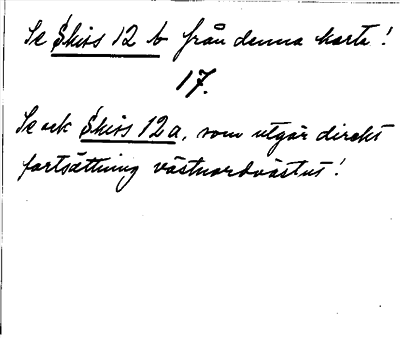 Se Skiss 12 b från denna karta!
17.
Se ock Skiss 12a, som utgör direkt
fortsättning västnordvästut!